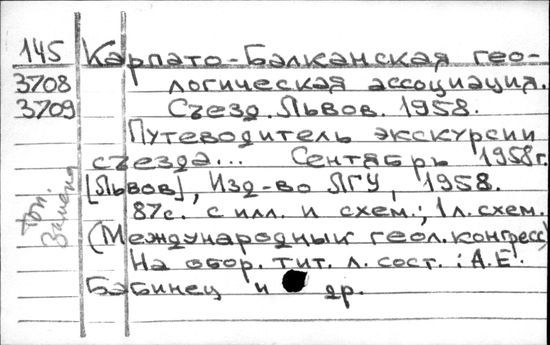 145 Карпато-Балканская гео-
3708 логическая ассоциация.
3709 Съезд. Львов. 1958.
Путеводитель экскурсии
съезда... Сентябрь 1958г.
[Львов], Изд-во ЛГУ, 1958.
87с. с илл. и схем.; 1л. схем.
(Международный геол. конгресс)
На обор. тит. л. сост.: А.Е.
Бабинец и др.
Доп.
Замена